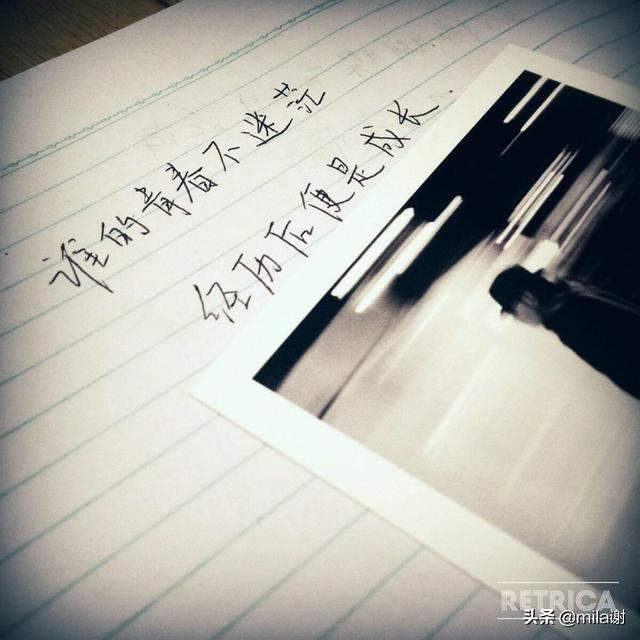 谁的青春不迷茫
经历后便是成长.
RETRICA
头条 @mila谢